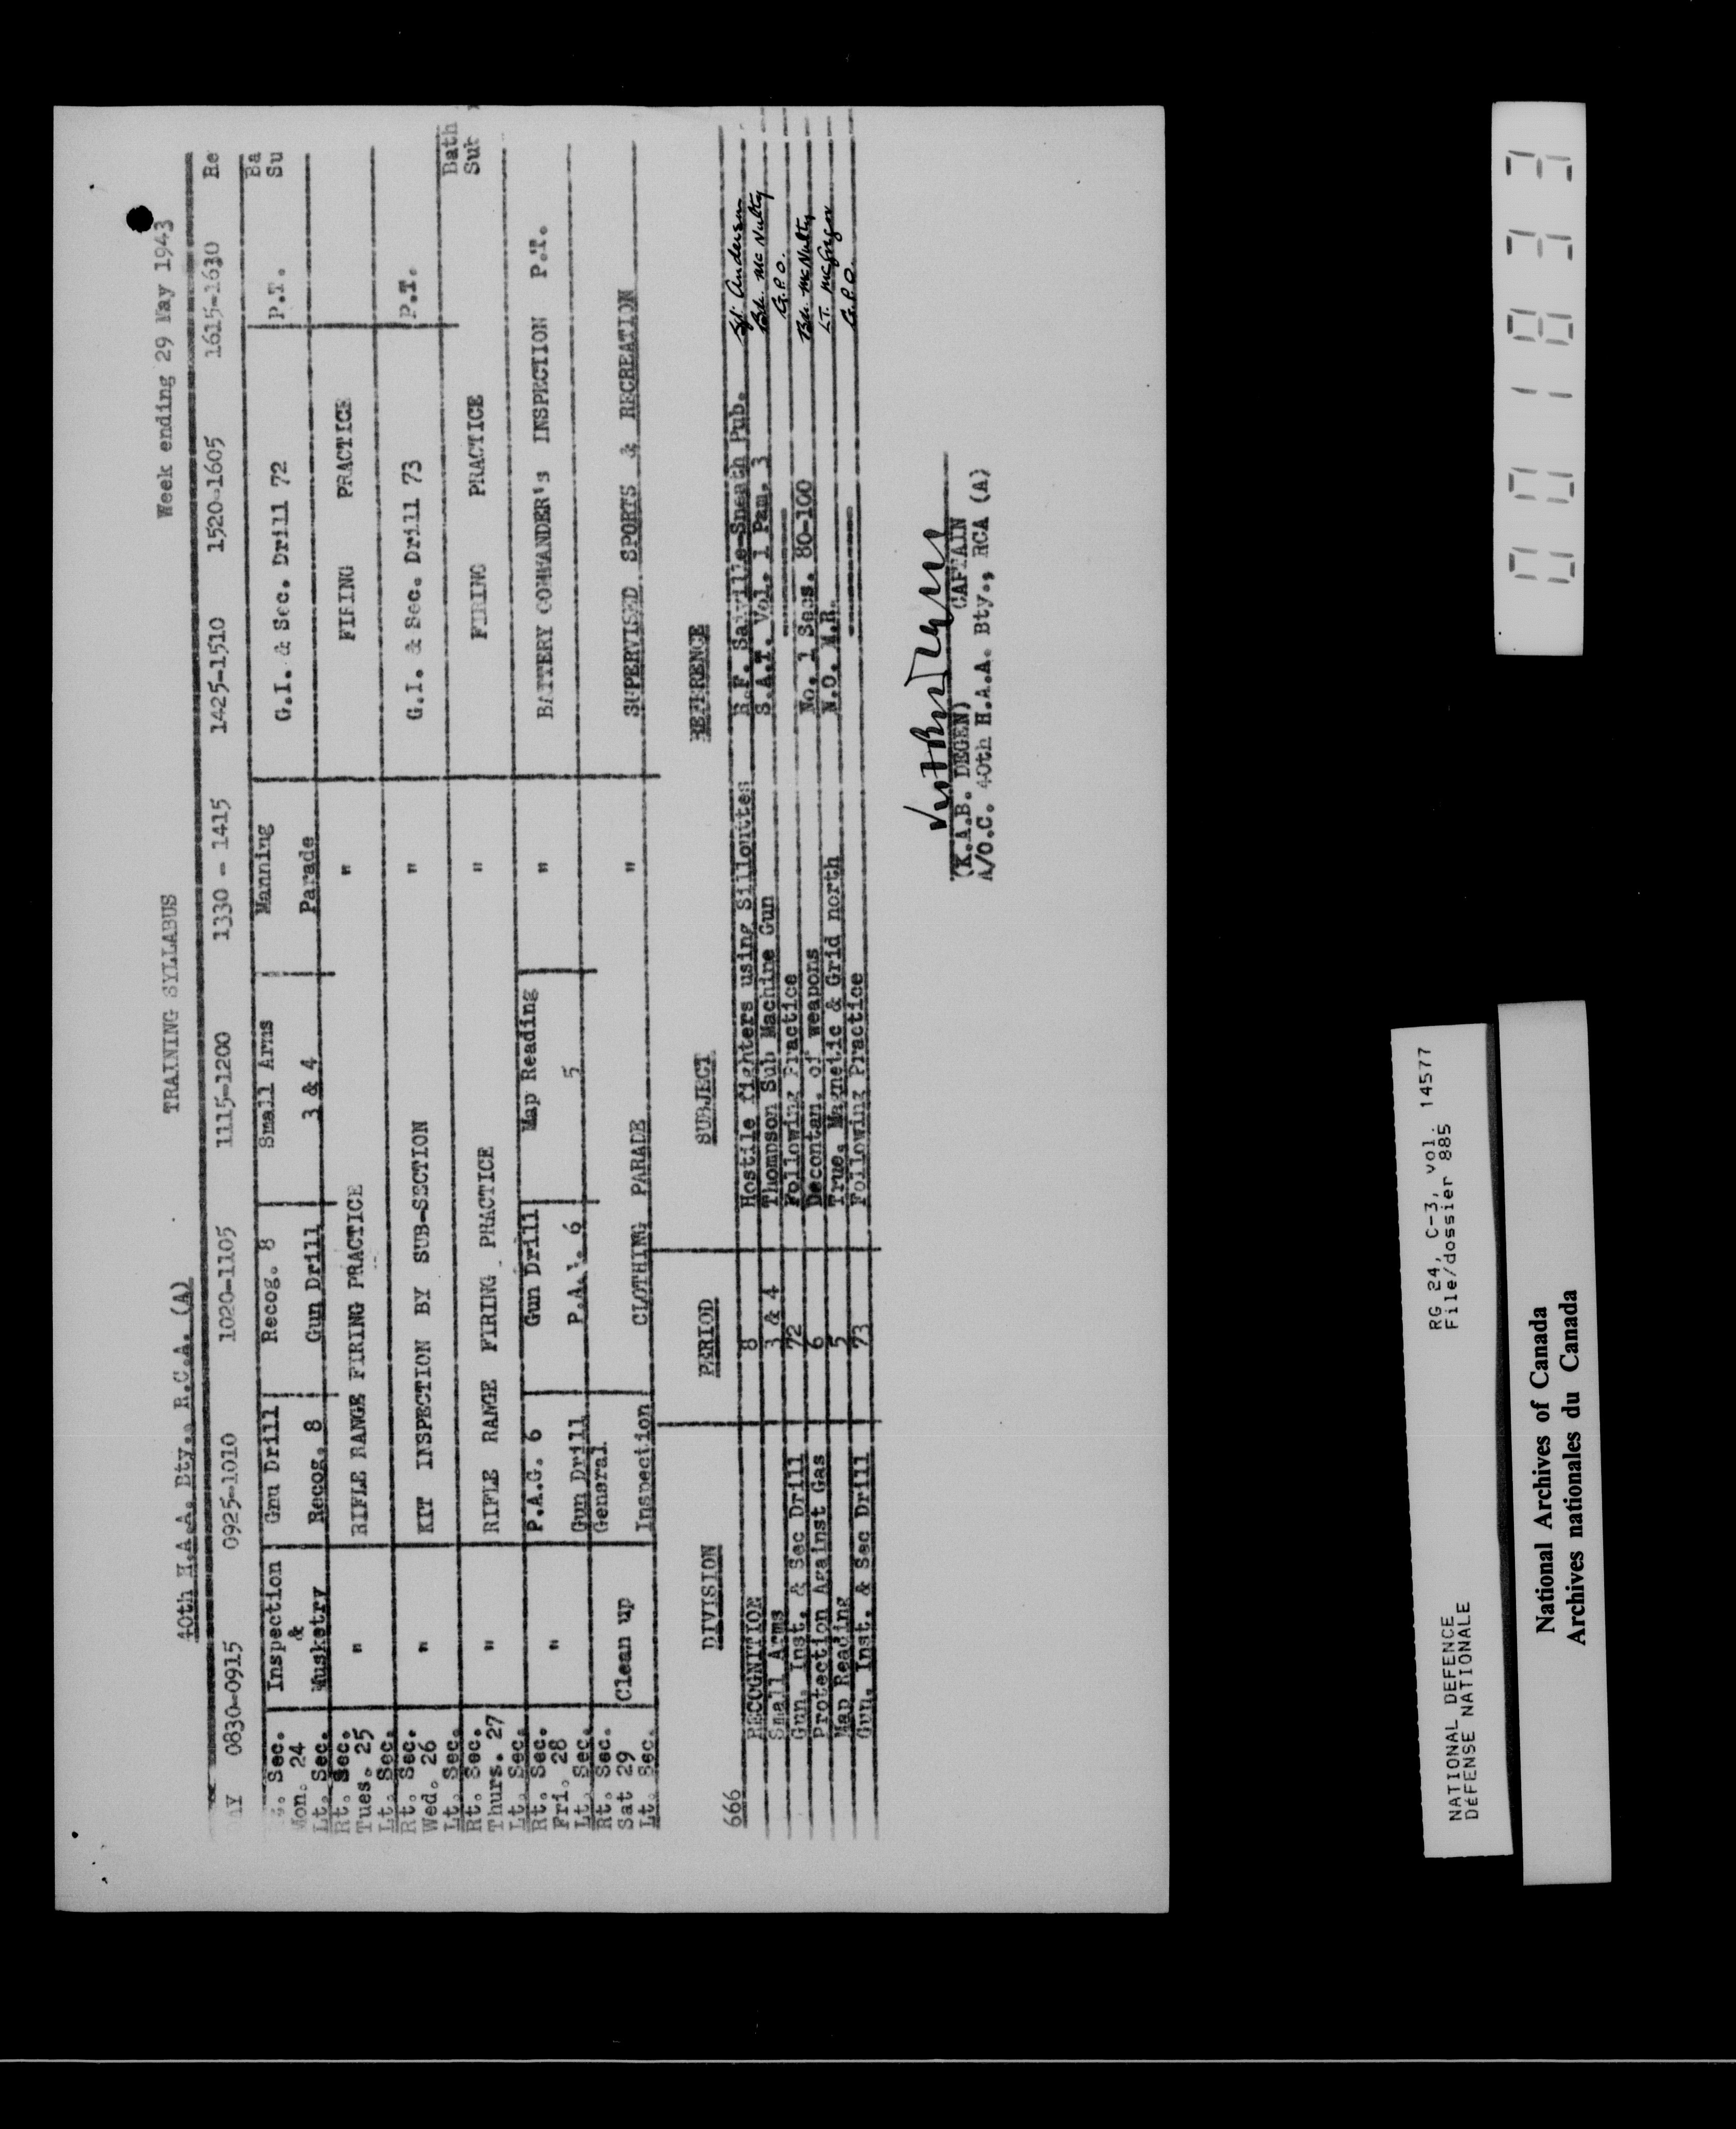 40th H.A.A. Bty., R.C.A. (A) TRAINING SYLLABUS Week ending 29 May 1943
AY 0830-0915 0925-1010 1020-1105 1115-1200 1330 - 1415 1425-1510 1520-1605 1615-1630 Re
Sec. Inspection Gnu Drill Recog. 8 Small Arms Manning G.I. & Sec. Drill 72 P.T. Ba
Mon. 24 & Su
Lt. Sec. Musketry Recog. 8 Gun Drill 3 & 4 Parade
Rt. Sec.
Tues. 25 " RIFLE RANGE FIRING PRACTICE " FIRING PRACTICE
Lt. Sec.
Rt. Sec.
Wed. 26 " KIT INSPECTION BY SUB-SECTION " G.I. & Sec. Drill 73 P.T.
Lt. Sec. Bath
Rt. Sec. Sub
Thurs. 27 " RIFLE RANGE FIRING PRACTICE " FIRING PRACTICE
Lt. Sec.
Rt. Sec. P.A.G. 6 Gun Drill Map Reading
Fri. 28 " " BATTERY COMMANDER'S INSPECTION P.T.
Lt. Sec. Gun Drill P.A.G. 6 5
Rt. Sec. General
Sat 29 Clean up " SUPERVISED SPORTS & RECREATION
Lt. Sec. Inspection CLOTHING PARADE
666 DIVISION PERIOD SUBJECT REFERENCE
RECOGNITION 8 Hostile fighters using Sillouttes R.F. Saville-Sneath Pub. Sjt. Anderson
Small Arms 3 & 4 Thompson Sub Machine Gun S.A.T. Vol. 1 Pam. 3 Bdr. McNulty
Gun, Inst. & Sec Drill 72 Following Practice -------- G.P.O.
Protection Against Gas 6 Decontan. of weapons No. 1 Secs. 80-100 Bdr. McNulty
Map Reading 5 True, Magnetic & Grid north N.O. M.R. LT. McGregor
Gun, Inst. & Sec Drill 73 Following Practice -------- G.P.O.
(K.A.B. DEGEN) CAPTAIN
A/O.C. 40th H.A.A. Bty., RCA (A)
001833
NATIONAL DEFENCE RG 24, C-3, vol. 14577
DÉFENSE NATIONALE File/dossier 885
National Archives of Canada
Archives nationales du Canada